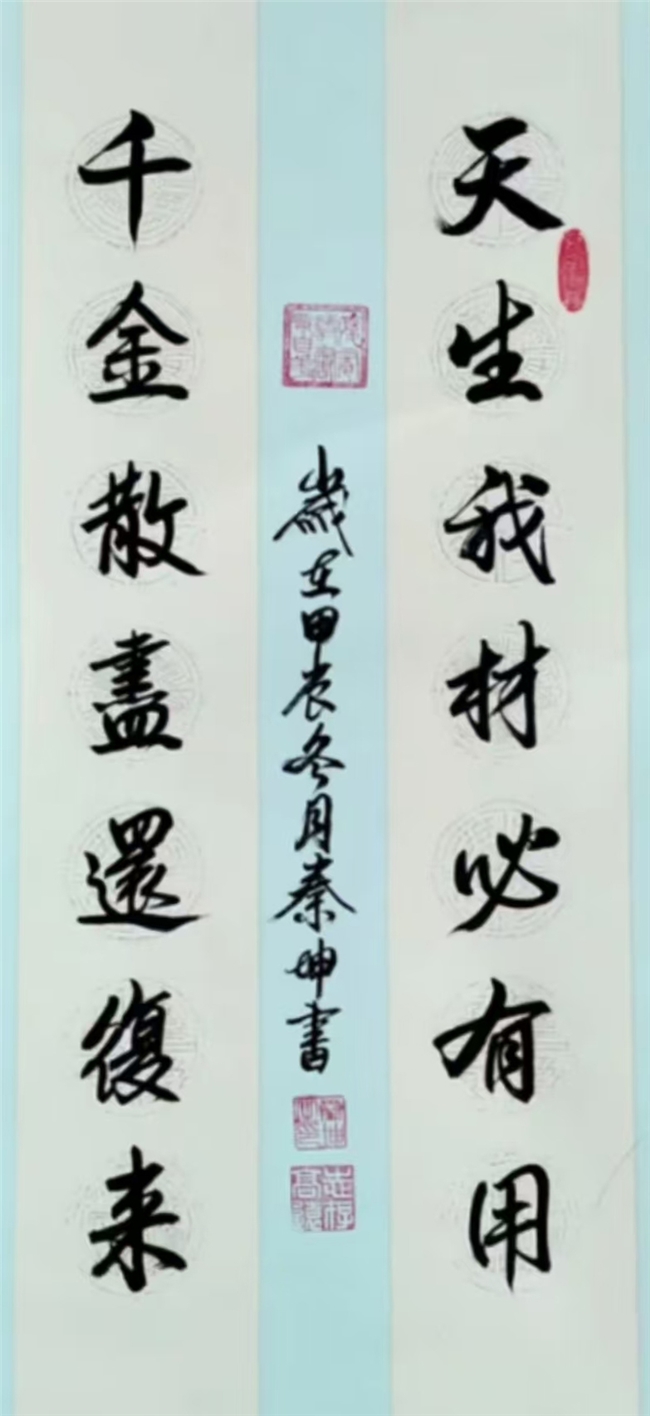 天生我材必有用
千金散盡還復来
歲在甲辰冬月秦坤书